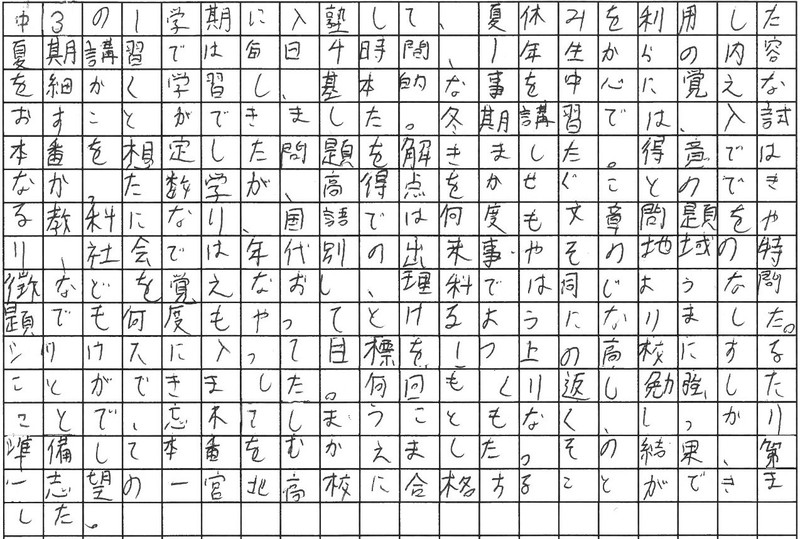 中3の1学期に入塾して、夏休みを利用した
夏期講習では毎日4時間、1年生からの内容
を細かく学習し、基本的な事を中心に覚えな
おすことができました。冬期講習では、入試
本番を想定した問題を解きました。得意では
なかった数学が、高得点をかせぐことのでき
る教科になり、国語では何度も文章問題をや
り、社会では年代別の出来事やその地域の特
徴などを覚えなおし、理科では同じような問
題でも何度もやってとけるようになりました。
シリウスに入って目標を1つ上の高校にする
ことができました。何回もくり返し勉強した
ことで、忘れてしまうこともなく、しっかり
準備して本番をむかえました。その結果、第
一志望の一宮北高校に合格することができま
した。